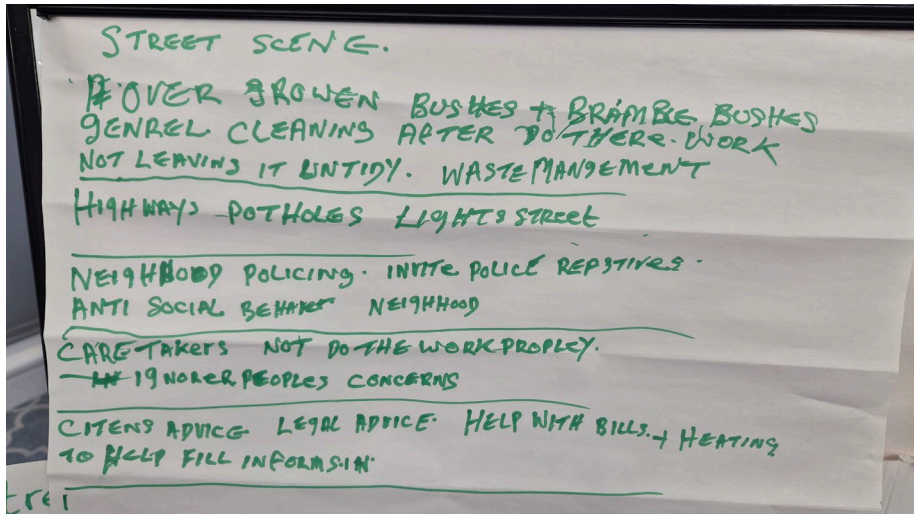 STREET SCENE.
OVER GROWEN BUSHES + BRAMBLE BUSHES
GENREL CLEANING AFTER DO THERE. WORK
NOT LEAVING IT UNTIDY. WASTE MANGEMENT
HIGHWAYS POTHOLES LIGHTS STREET
NEIGHHOOD POLICING. INVITE POLICE REPSTIVES.
ANTI SOCIAL NEIGHHOOD
CARETAKERS NOT DO THE WORK PROPLEY.
IGNORER PEOPLES CONCERNS
CITENS ADVICE LEGAL ADVICE. HELP WITH BILLS. + HEATING
TO HELP FILL IN FORMS. IN.